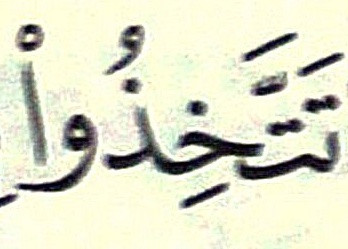 تَتَّخِذُواْ